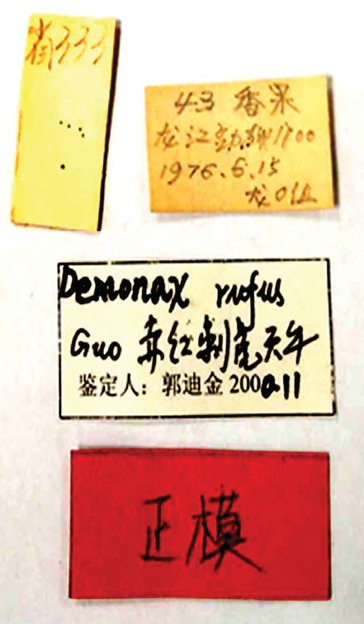 333
43 香果
龙江勐糯1700
1976.6.15
Demonax rufus
Guo 赤红刺虎天牛
鉴定人: 郭迪金 2000.11
正模